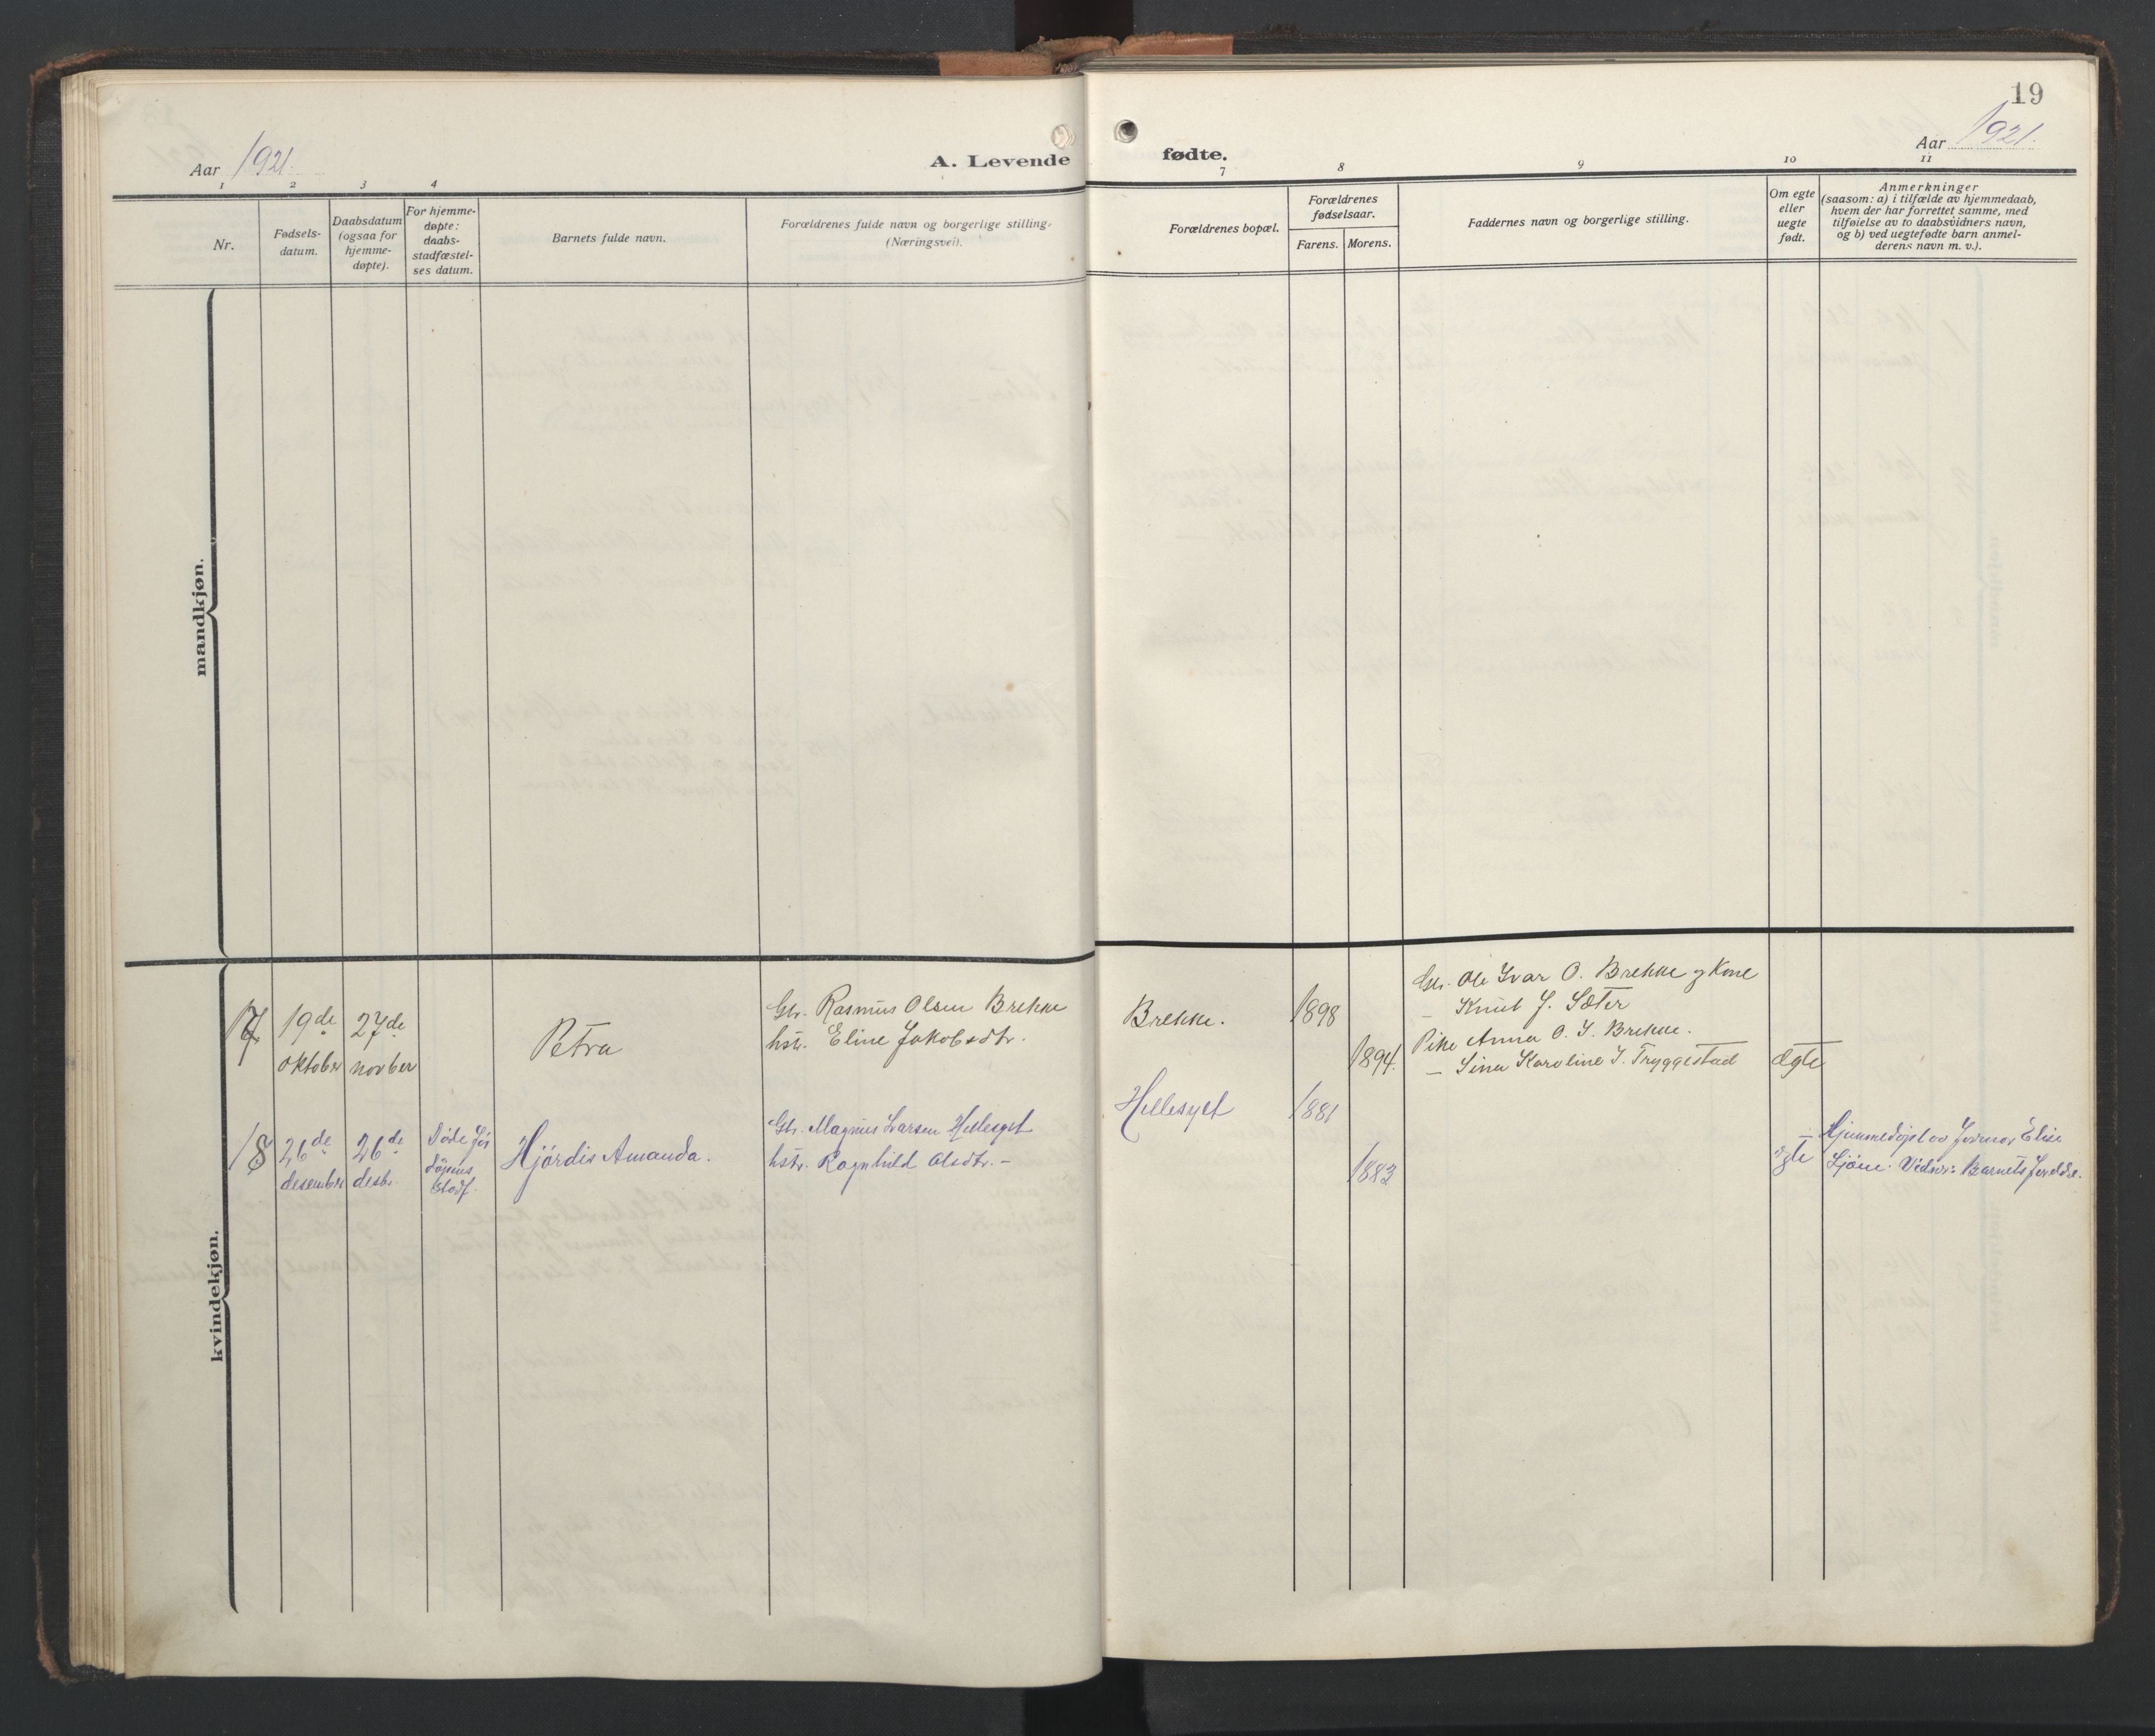 19
Aar 1921.
A. Levende fødte.
Aar 1921.
1 2 3 4 7 8 9 10 11
Nr.
Fødsels-
datum.
Daabsdatum
(ogsaa for
hjemme-
døpte).
For hjemme-
døpte:
daabs-
stadfæstel-
ses datum.
Barnets fulde navn.
Forældrenes fulde navn og borgerlige stilling.
(Næringsvei).
Forældrenes bopæl.
Forældrenes
fødselsaar.
Farens. Morens.
Faddernes navn og borgerlige stilling.
Om egte
eller
uegte
født.
Anmerkninger
(saasom: a) i tilfælde av hjemmedaab,
hvem der har forrettet samme, med
tilføielse av to daabsvidners navn,
og b) ved uegtefødte barn anmel-
derens navn m. v.).
mandkjøn.
kvindekjøn.
17
19de
oktober
27de
novber
Petra
Gbr. Rasmus Olsen Brekke
hstr. Eline Jakobsdtr.
Brekke.
1898
1894.
Gbr. Ole Ivar O. Brekke og Kone
– Knut J. Sæter
Pike Anna O. I. Brekke.
– Sina Karoline I. Tryggestad
ægte
18
26de
desember
26de
desbr.
Døde før
Dåpens
Stadf.
Hjördis Amanda.
Gbr. Magnus Larsen Hellesylt
hstr. Ragnhild Olsdtr. –
Hellesylt
1881
1883
ægte
Hjemmedøpt av Jormor Elise
Ljøen. Vidner: Barnets foreldre.